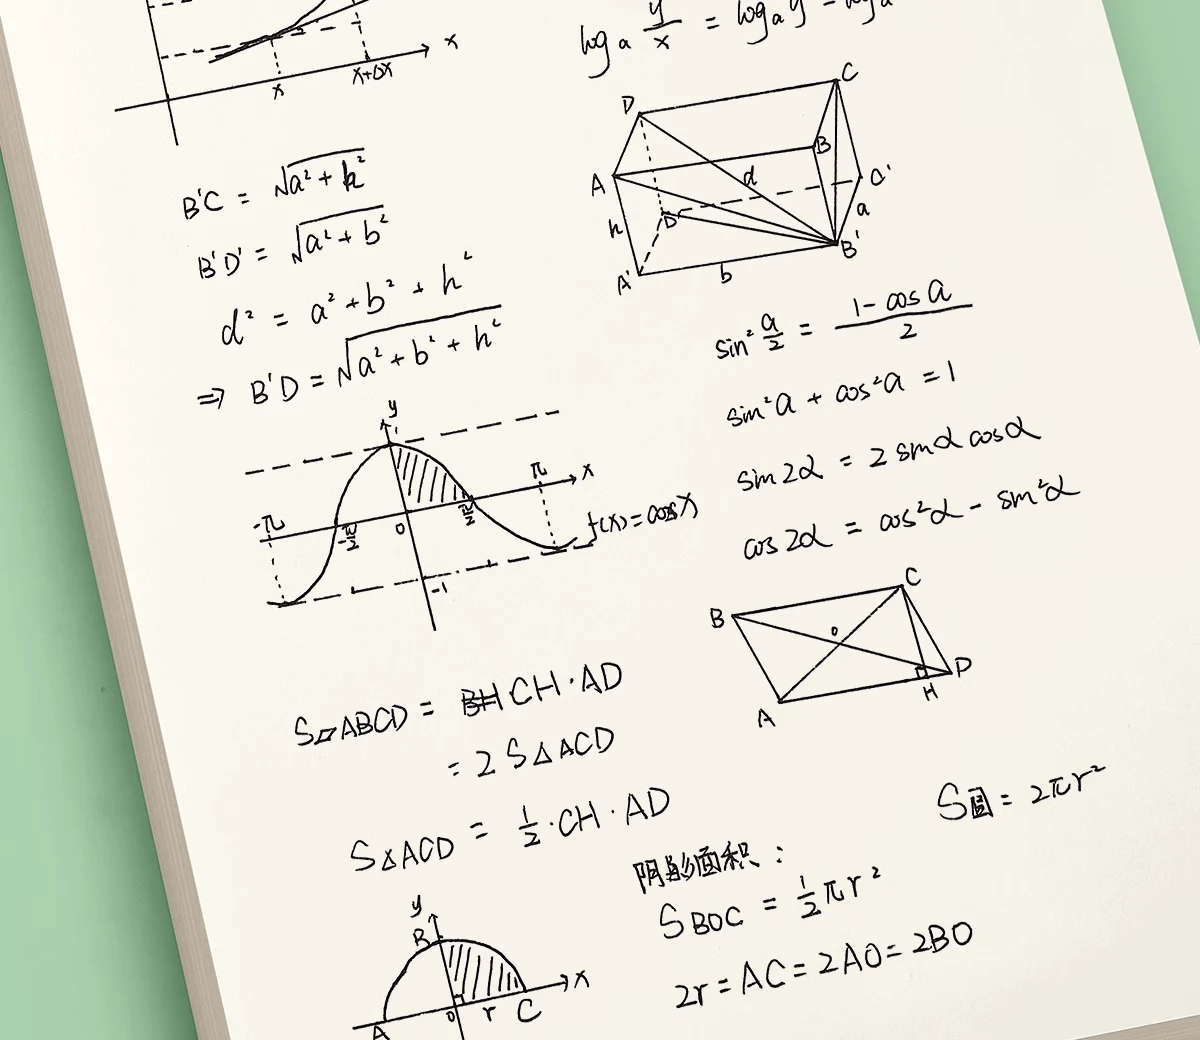 x
x
x+Δx
log a y/x = log a y - log a
B'C = √a² + h²
B'D' = √a² + b²
d² = a² + b² + h²
⇒ B'D = √a² + b² + h²
D
C
A
B
d
D'
C'
h
a
A'
b
B'
sin² a/2 = 1 - cos a / 2
sin²a + cos²a = 1
sin 2α = 2 sinα cosα
cos 2α = cos²α - sin²α
y
1
π
x
-π
-π/2
0
π/2
f(x) = cosx
-1
B
C
o
A
H
D
S▱ABCD = CH·AD
= 2 S△ACD
S△ACD = 1/2·CH·AD
S圆 = 2πr²
阴影面积:
S BOC = 1/2 πr²
2r = AC = 2AO = 2BO
y
B
x
A
0
r
C